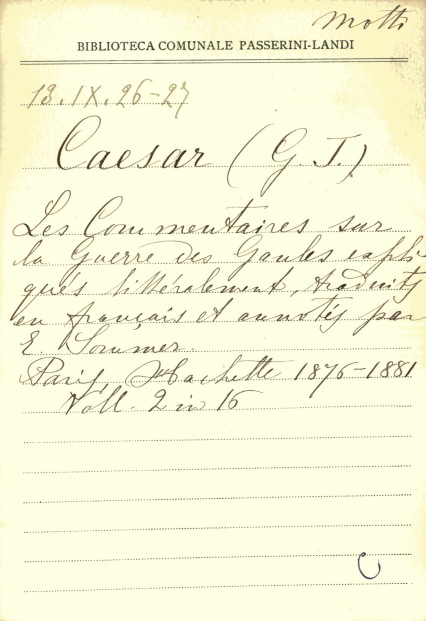 Motti
BIBLIOTECA COMUNALE PASSERINI-LANDI
13.IX.26-27
Caesar (G. J.)
Les Commentaires sur
la Guerre des Gaules expli-
qués littéralement, traduits
en français et annotés par
E. Sommer.
Paris, Hachette 1876-1881
Voll. 2 in 16
C